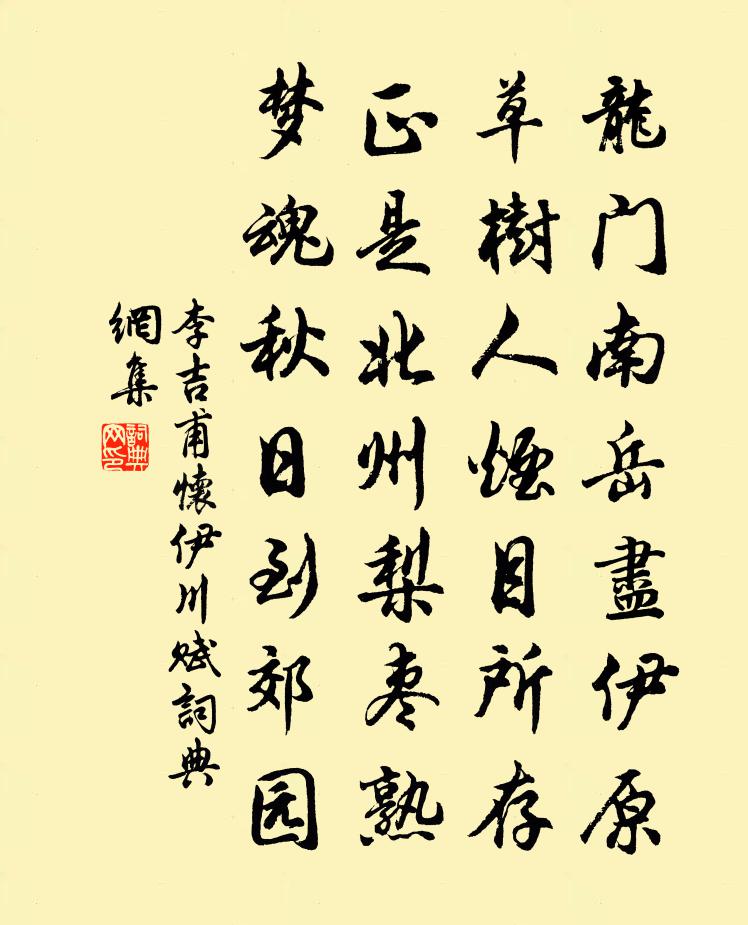 龍门南岳盡伊原
草樹人煙目所存
正是北州梨枣熟
梦魂秋日到郊园
李吉甫懷伊川赋詞典
網集
詞典
网印